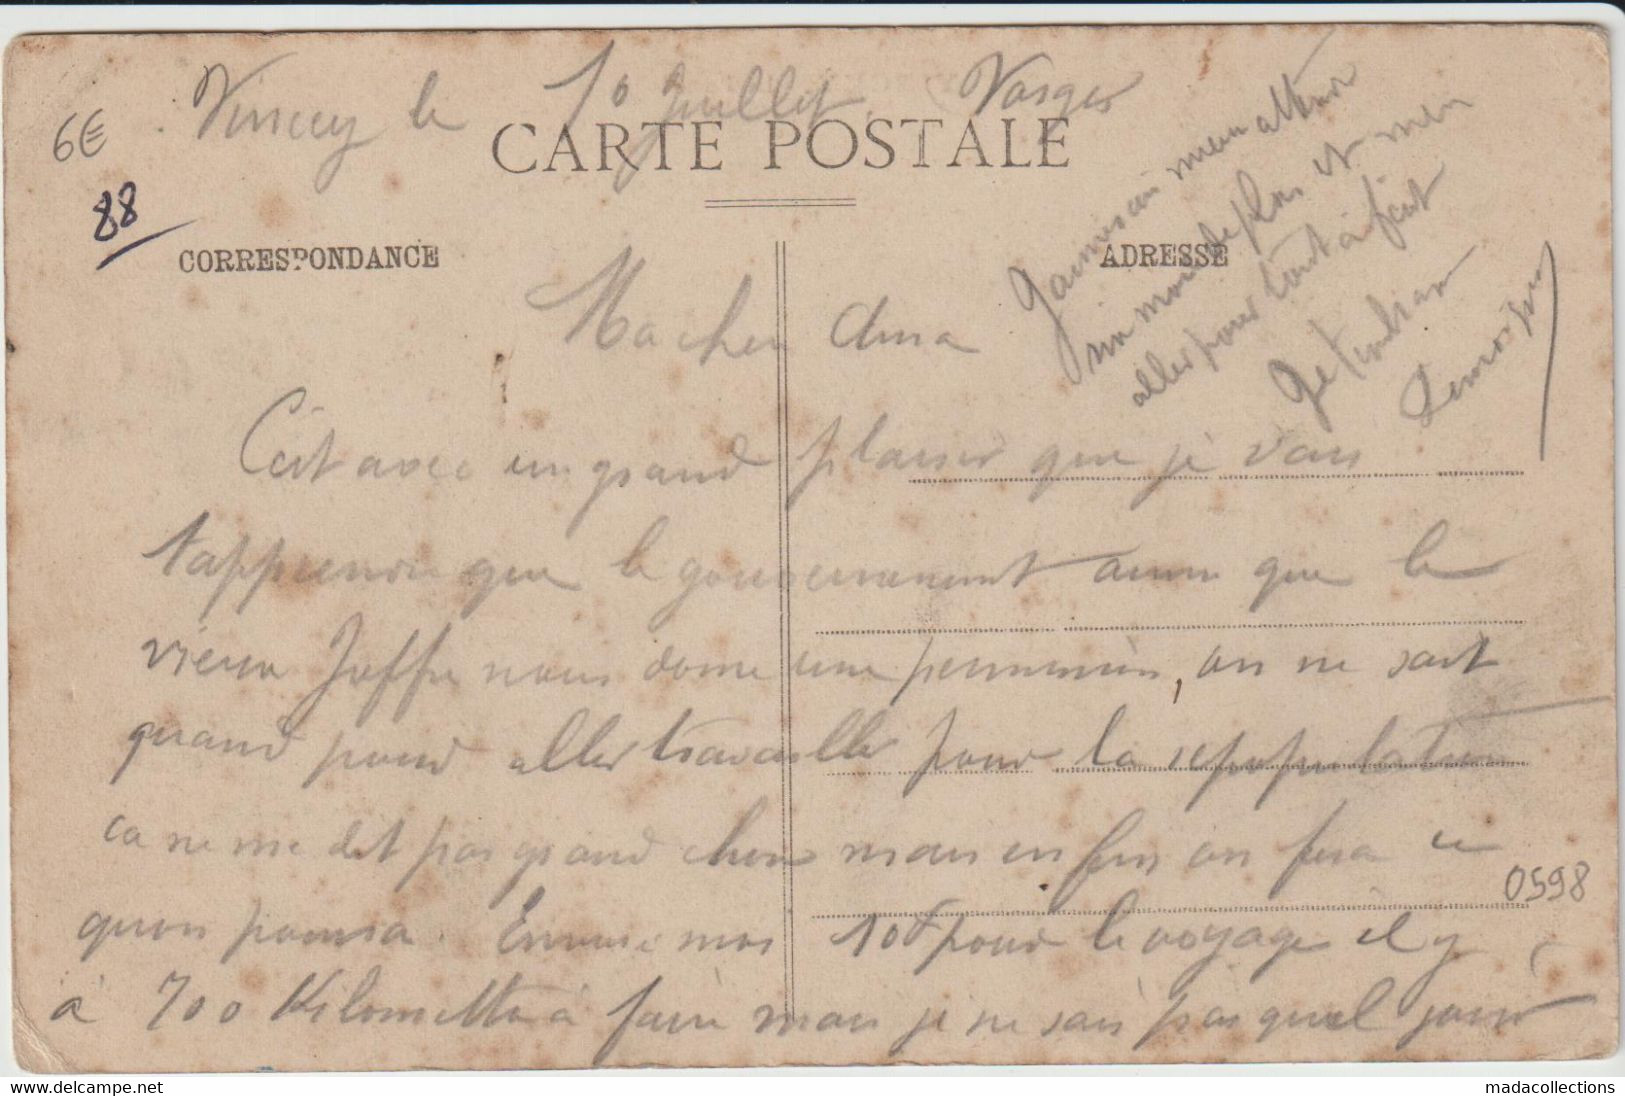 6€
88
Vincey le 10 Juillet Vosges
CARTE POSTALE
CORRESPONDANCE
ADRESSE
Ma cher Anna
C'est avec un grand plaisir que je vais
t'apprendre que le gouvernement ainsi que le
vieux Joffre nous donne une permission, on ne sait
quand pour aller travailler pour la repopulation
ca ne me dit pas grand chose mais enfin on fera ce
quon pourra. Envoie moi 10f pour le voyage il y
à 700 Kilometre à faire mais je ne sais pas quel jour
mieux attendre
un mois de plus et m'en
aller pour tout à fait
Je t'embrasse
0598
www.delcampe.net
madacollections